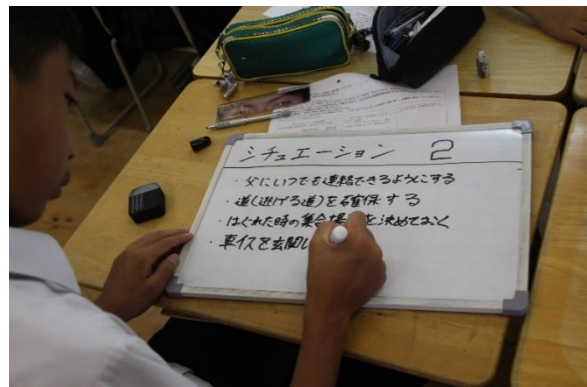 シチュエーション 2
・父にいつでも連絡できるようにする
・道(逃げる道)を確保する
・はぐれた時の集合場を決めておく
・車イスを玄関